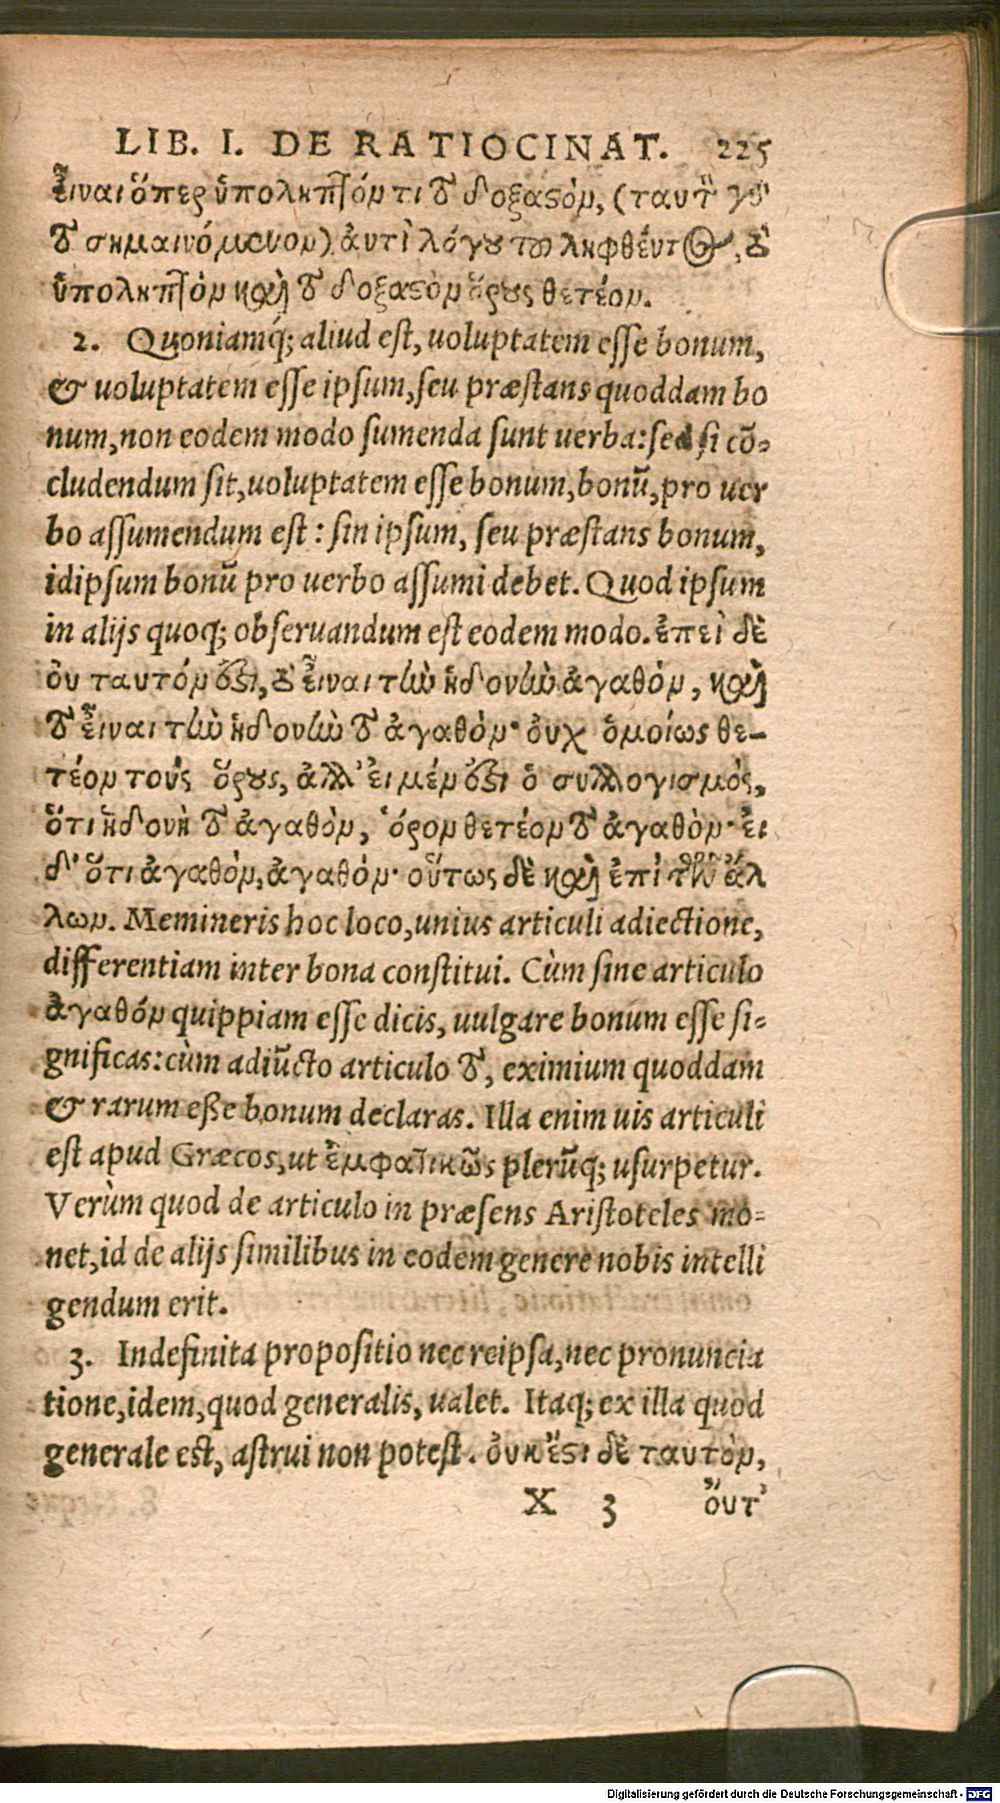 LIB. I. DE RATIOCINAT. 225
εἶναι ὅπερ ὑποληπτόν τι τὸ δοξαστόν, (ταυτὸ γὸ
τὸ σημαινόμενον) ἀντὶ λόγου τῶ ληφθέντος, τὸ
ὑποληπτὸν καὶ τὸ δοξαστὸν ὅρους θετέον.
2. Quoniamq́; aliud est, uoluptatem esse bonum,
& uoluptatem esse ipsum, seu præstans quoddam bo
num, non eodem modo sumenda sunt uerba: sed si cō-
cludendum sit, uoluptatem esse bonum, bonū, pro uer
bo assumendum est: sin ipsum, seu præstans bonum,
idipsum bonū pro uerbo assumi debet. Quod ipsum
in alijs quoq; obseruandum est eodem modo. ἐπεὶ δὲ
οὐ ταυτόν ὅξι, τὸ εἶναι τὼ ἡδονὼ ἀγαθόν, καὶ
τὸ εἶναι τὼ ἡδονὼ τὸ ἀγαθόν· οὐχ ὁμοίως θε-
τέον τοὺς ὅρους, ἀλλ' εἰ μέν ὅξι ὁ συλλογισμός,
ὅτι ἡδονὴ τὸ ἀγαθὸν, ὅρον θετέον τὸ ἀγαθὸν· εἰ
δ' ὅτι ἀγαθόν, ἀγαθόν· οὕτως δὲ καὶ ἐπὶ τῶν ἄλ
λων. Memineris hoc loco, unius articuli adiectione,
differentiam inter bona constitui. Cùm sine articulo
ἀγαθόν quippiam esse dicis, uulgare bonum esse si-
gnificas: cùm adiūcto articulo τὸ, eximium quoddam
& rarum eße bonum declaras. Illa enim uis articuli
est apud Græcos, ut ἐμφατικῶς plerūq; usurpetur.
Verùm quod de articulo in præsens Aristoteles mo-
net, id de alijs similibus in eodem genere nobis intelli
gendum erit.
3. Indefinita propositio nec reipsa, nec pronuncia
tione, idem, quod generalis, ualet. Itaq; ex illa quod
generale est, astrui non potest. οὐκ ἔστι δὲ ταυτὸν,
X 3 οὔτ'
Digitalisierung gefördert durch die Deutsche Forschungsgemeinschaft - DFG